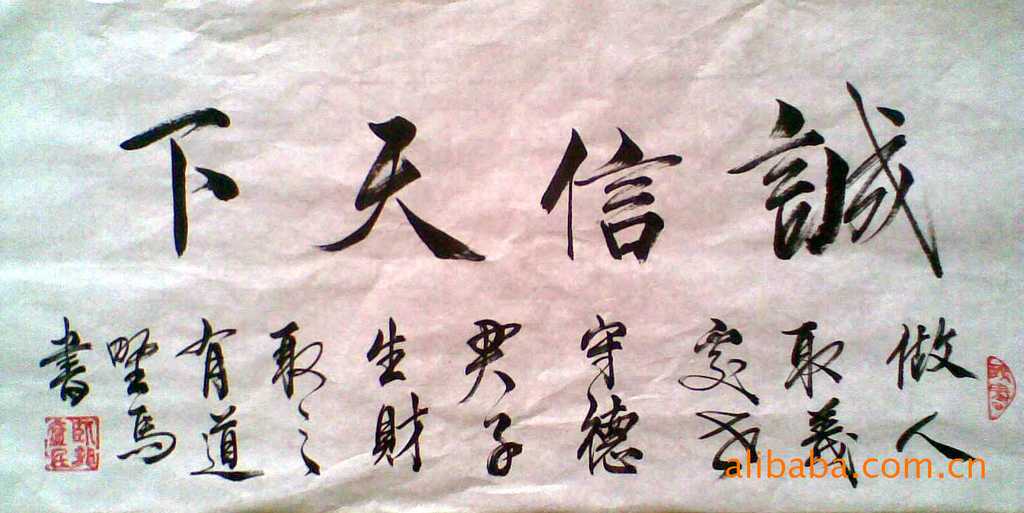 誠信天下
做人
取義
處世
守德
君子
生財
取之
有道
野馬
書
alibaba.com.cn